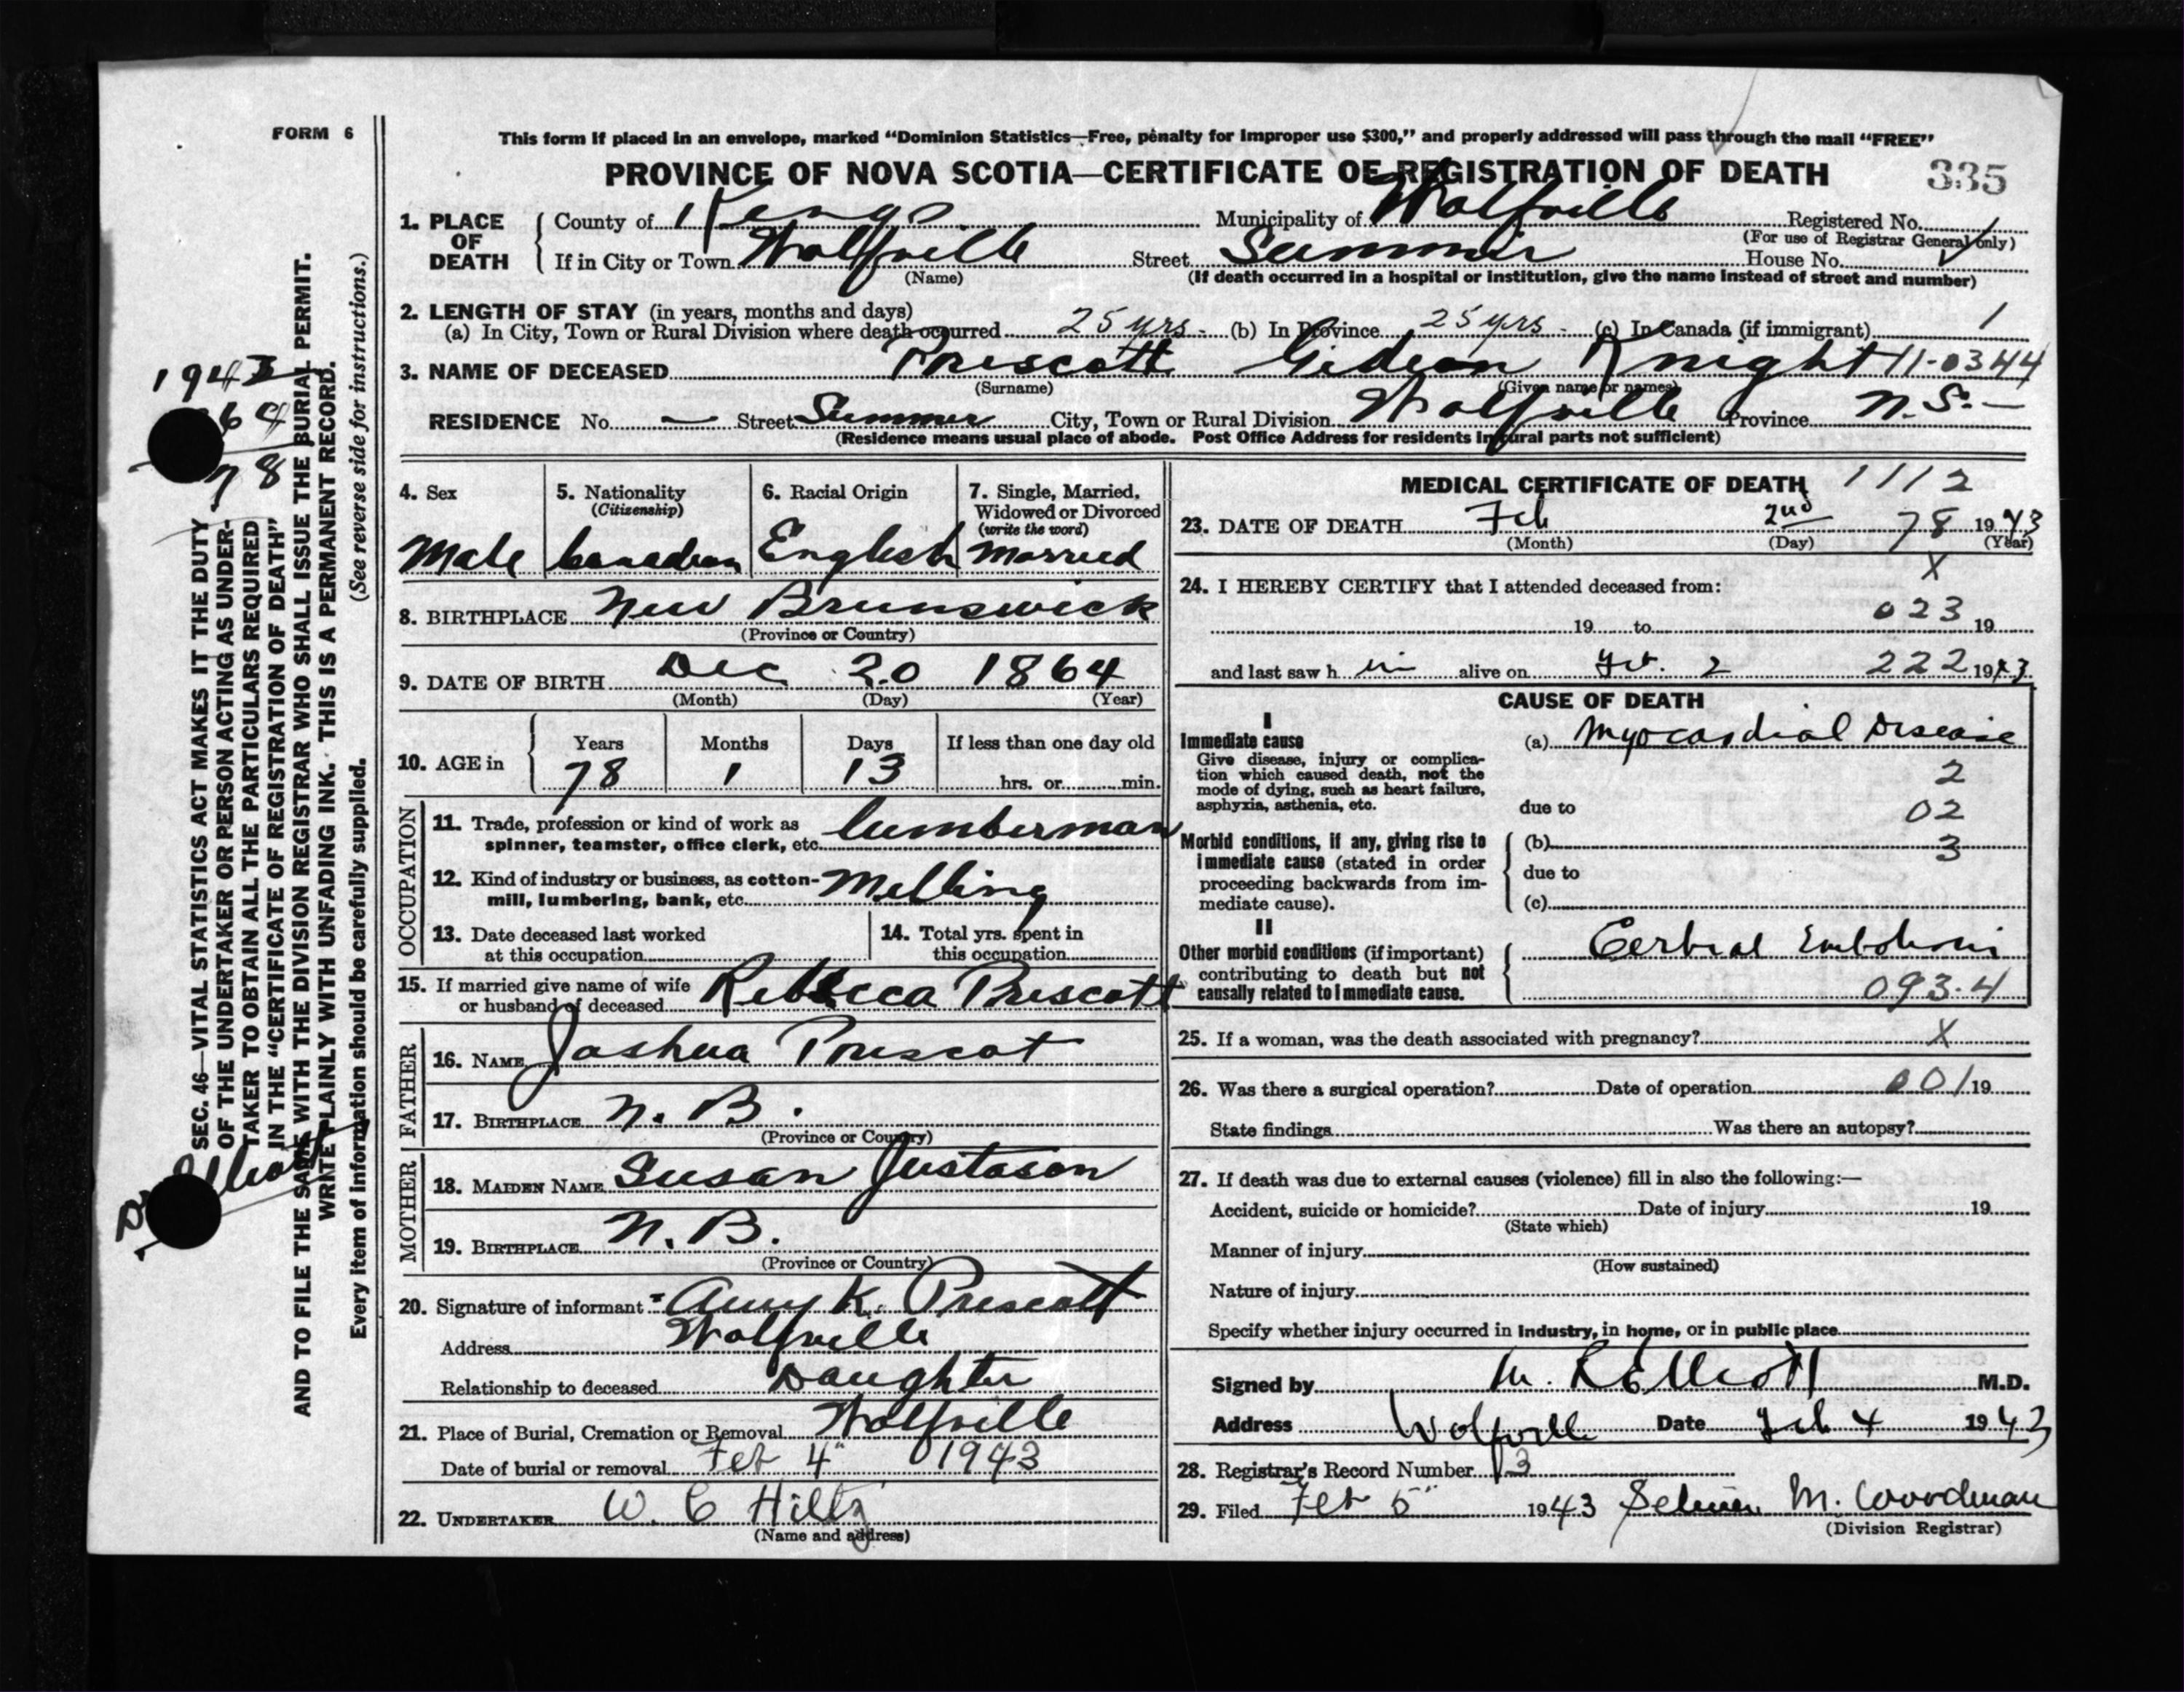 FORM 6
This form if placed in an envelope, marked “Dominion Statistics—Free, penalty for improper use $300,” and properly addressed will pass through the mail “FREE”
PROVINCE OF NOVA SCOTIA—CERTIFICATE OF REGISTRATION OF DEATH 335
1. PLACE OF DEATH County of Kings Municipality of Wolfville Registered No.
(For use of Registrar General only)
If in City or Town Wolfville Street Summer House No.
(Name) (If death occurred in a hospital or institution, give the name instead of street and number)
2. LENGTH OF STAY (in years, months and days) 1
(a) In City, Town or Rural Division where death occurred 25 yrs - (b) In Province 25 yrs - (c) In Canada (if immigrant)
3. NAME OF DECEASED Prescott Gideon Knight 11-0344
(Surname) (Given name or names)
RESIDENCE No. — Street Summer City, Town or Rural Division Wolfville Province N.S. —
(Residence means usual place of abode. Post Office Address for residents in rural parts not sufficient)
4. Sex 5. Nationality 6. Racial Origin 7. Single, Married,
(Citizenship) Widowed or Divorced
(write the word)
Male Canadian English Married
8. BIRTHPLACE New Brunswick
(Province or Country)
9. DATE OF BIRTH Dec 20 1864
(Month) (Day) (Year)
10. AGE in Years Months Days If less than one day old
78 1 13 hrs. or min.
OCCUPATION
11. Trade, profession or kind of work as lumberman
spinner, teamster, office clerk, etc.
12. Kind of industry or business, as cotton- Milling
mill, lumbering, bank, etc.
13. Date deceased last worked 14. Total yrs. spent in
at this occupation this occupation
15. If married give name of wife Rebecca Prescott
or husband of deceased
FATHER
16. NAME Joshua Prescot
17. BIRTHPLACE N. B.
(Province or Country)
MOTHER
18. MAIDEN NAME Susan Justason
19. BIRTHPLACE N. B.
(Province or Country)
20. Signature of informant Amy K. Prescott
Address Wolfville
Relationship to deceased Daughter
21. Place of Burial, Cremation or Removal Wolfville
Date of burial or removal Feb 4" 1943
22. UNDERTAKER W. C Hiltz
(Name and address)
MEDICAL CERTIFICATE OF DEATH 1112
23. DATE OF DEATH Feb 2nd 78 1943
(Month) (Day) (Year)
X
24. I HEREBY CERTIFY that I attended deceased from:
19 to 023 19
and last saw h im alive on Feb. 2 222 1943
CAUSE OF DEATH
I
Immediate cause (a) Myocardial Disease
Give disease, injury or complica-
tion which caused death, not the 2
mode of dying, such as heart failure,
asphyxia, asthenia, etc. due to 02
Morbid conditions, if any, giving rise to (b) 3
immediate cause (stated in order
proceeding backwards from im- due to
mediate cause). (c)
II
Other morbid conditions (if important) Cerbral Embolism
contributing to death but not
causally related to immediate cause. 093.4
25. If a woman, was the death associated with pregnancy? X
26. Was there a surgical operation? Date of operation 001 19
State findings Was there an autopsy?
27. If death was due to external causes (violence) fill in also the following:—
Accident, suicide or homicide? Date of injury 19
(State which)
Manner of injury
(How sustained)
Nature of injury
Specify whether injury occurred in industry, in home, or in public place
Signed by M. R Elliott M.D.
Address Wolfville Date Feb 4 1943
28. Registrar's Record Number 13
29. Filed Feb 5" 1943 M. Woodman
(Division Registrar)
1943
64
78
SEC. 46—VITAL STATISTICS ACT MAKES IT THE DUTY
OF THE UNDERTAKER OR PERSON ACTING AS UNDER-
TAKER TO OBTAIN ALL THE PARTICULARS REQUIRED
IN THE “CERTIFICATE OF REGISTRATION OF DEATH”
AND TO FILE THE SAME WITH THE DIVISION REGISTRAR WHO SHALL ISSUE THE BURIAL PERMIT.
WRITE PLAINLY WITH UNFADING INK. THIS IS A PERMANENT RECORD.
Every item of information should be carefully supplied. (See reverse side for instructions.)